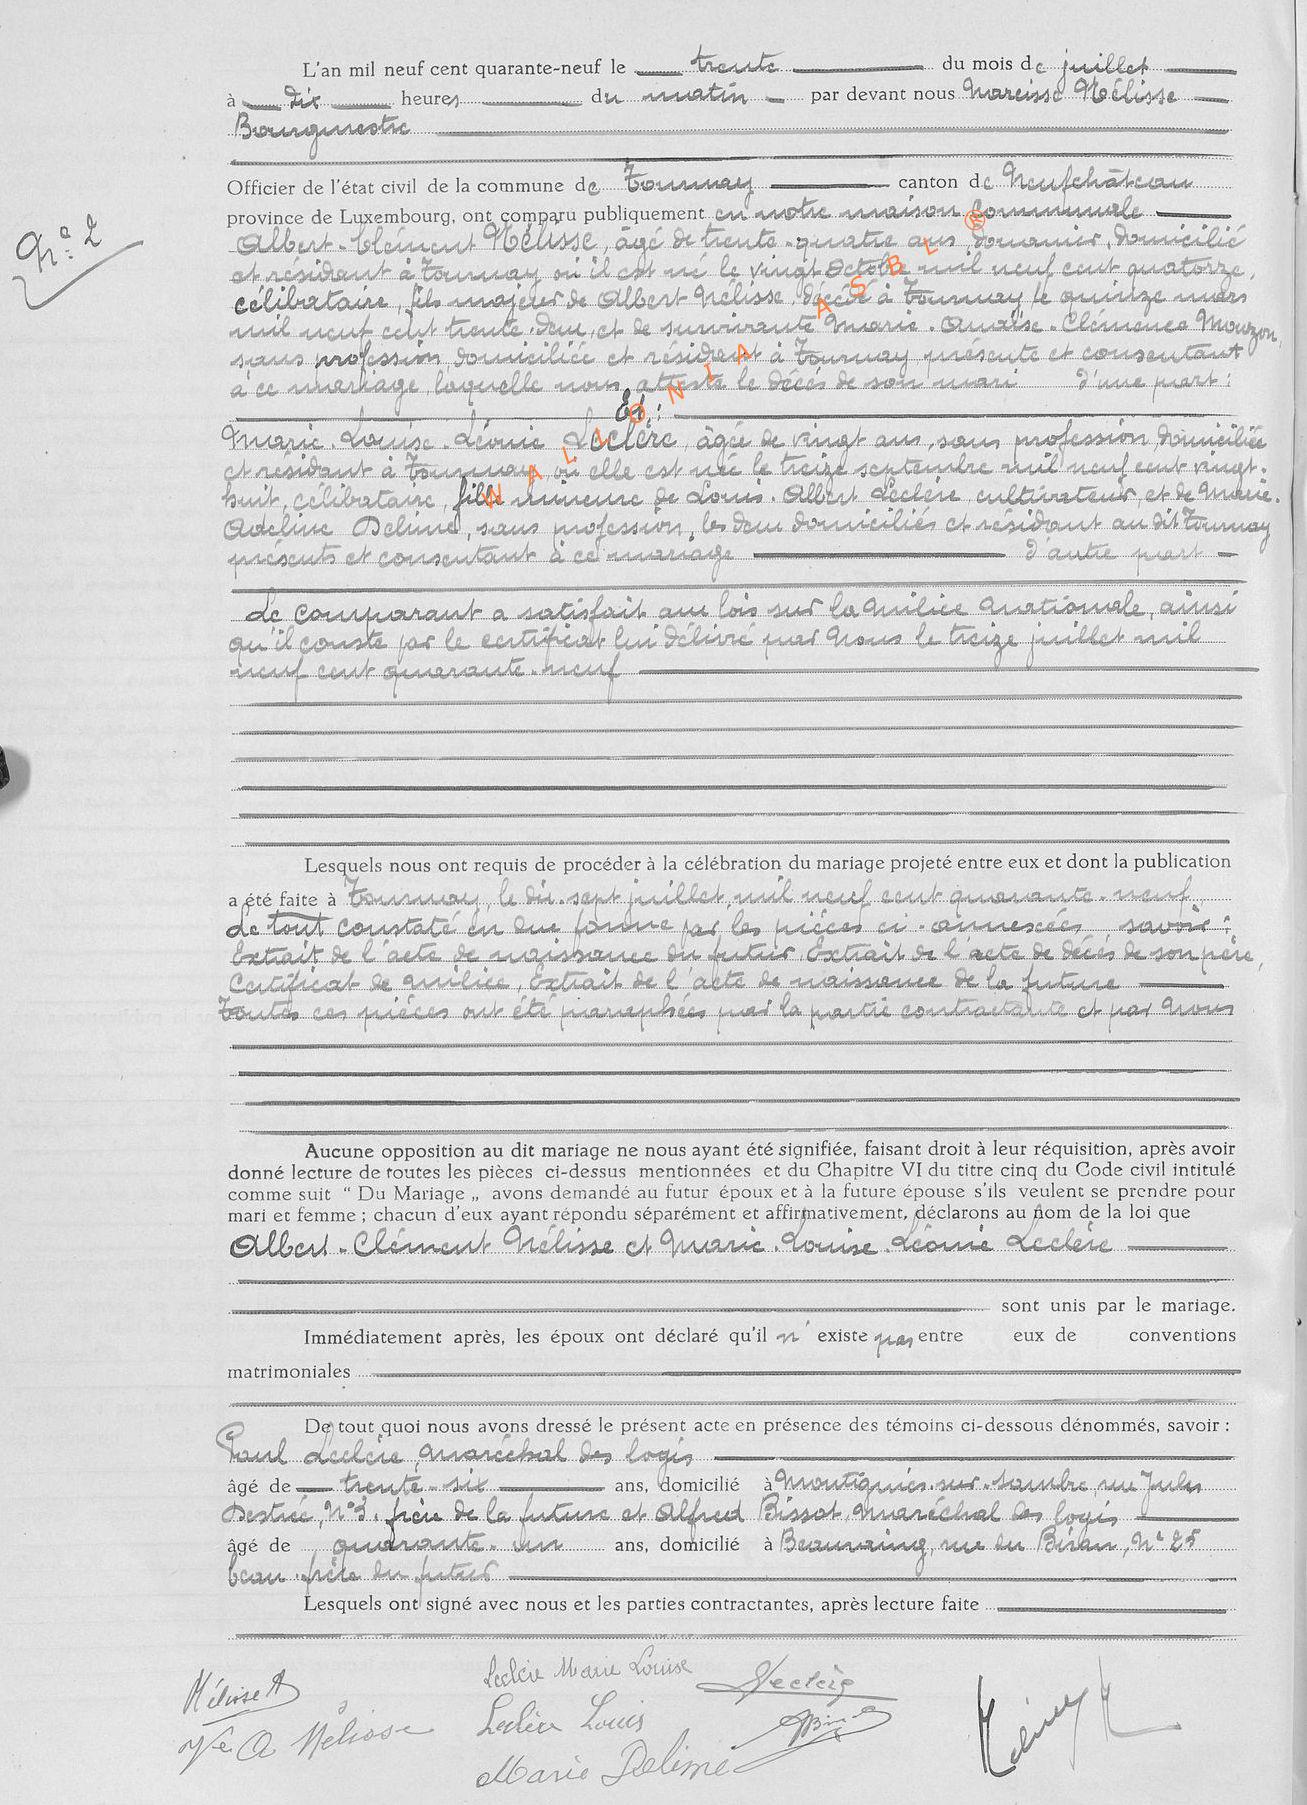 L'an mil neuf cent quarante-neuf le trente du mois de juillet
à dix heures du matin par devant nous Narcisse Nélisse
Bourgmestre
Officier de l'état civil de la commune de Tournay canton de Neufchâteau
province de Luxembourg, ont comparu publiquement en notre maison Communale
Nº 2
Albert-Clément Nélisse, âgé de trente-quatre ans, douanier, domicilié
et résidant à Tournay où il est né le vingt octobre mil neuf cent quatorze,
célibataire, fils majeur de Albert Nélisse, décédé à Tournay le quinze mars
mil neuf cent trente-deux, et de survivante Marie-Anaïse-Clémence Mouzon,
sans profession, domiciliée et résidant à Tournay, présente et consentant
à ce mariage, laquelle nous atteste le décès de son mari d'une part :
Et :
Marie-Louise-Léonie Leclère, âgée de vingt ans, sans profession, domiciliée
et résidant à Tournay, où elle est née le treize septembre mil neuf cent vingt-
huit, célibataire, fille mineure de Louis-Albert Leclère, cultivateur, et de Marie-
Adeline Delime, sans profession, les deux domiciliés et résidant au dit Tournay
présents et consentant à ce mariage d'autre part
WALLONIA ASBL ®
Le comparant a satisfait aux lois sur la milice nationale, ainsi
qu'il conste par le certificat lui délivré par Nous le treize juillet mil
neuf cent quarante-neuf
Lesquels nous ont requis de procéder à la célébration du mariage projeté entre eux et dont la publication
a été faite à Tournay, le dix-sept juillet, mil neuf cent quarante-neuf
Le tout constaté en due forme par les pièces ci-annexées savoir :
Extrait de l'acte de naissance du futur, Extrait de l'acte de décès de son père,
Certificat de milice, Extrait de l'acte de naissance de la future
Toutes ces pièces ont été paraphées par la partie contractante et par Nous
Aucune opposition au dit mariage ne nous ayant été signifiée, faisant droit à leur réquisition, après avoir
donné lecture de toutes les pièces ci-dessus mentionnées et du Chapitre VI du titre cinq du Code civil intitulé
comme suit “ Du Mariage „ avons demandé au futur époux et à la future épouse s'ils veulent se prendre pour
mari et femme ; chacun d'eux ayant répondu séparément et affirmativement, déclarons au nom de la loi que
Albert-Clément Nélisse et Marie-Louise-Léonie Leclère
sont unis par le mariage.
Immédiatement après, les époux ont déclaré qu'il n' existe pas entre eux de conventions
matrimoniales
De tout quoi nous avons dressé le présent acte en présence des témoins ci-dessous dénommés, savoir :
Paul Leclère, Maréchal des logis
âgé de trente-six ans, domicilié à Montignies-sur-Sambre, rue Jules
Destrée, Nº 3, frère de la future et Alfred Bissot, Maréchal des logis
âgé de quarante-un ans, domicilié à Beauraing, rue du Biran, Nº 25
beau-frère du futur
Lesquels ont signé avec nous et les parties contractantes, après lecture faite
Nélisse A
Leclère Marie Louise
Leclère
Ve A Nélisse
Leclère Louis
Marie Delime